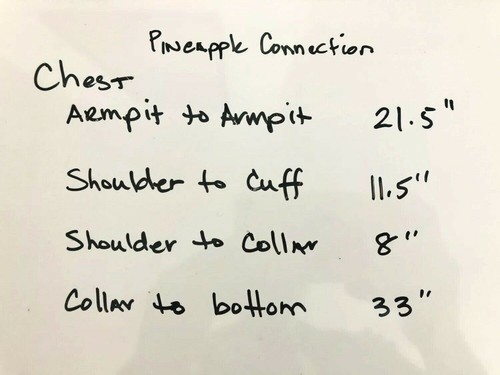 Pineapple Connection
Chest
Armpit to Armpit 21.5"
Shoulder to Cuff 11.5"
Shoulder to Collar 8"
Collar to bottom 33"